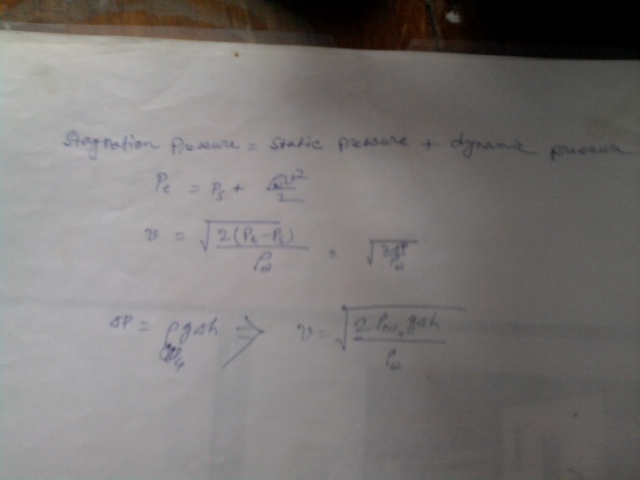 Stagnation Pressure = Static pressure + dynamic pressure
Pt = Ps + ρwv²/2
v = √(2(Pt-Ps)/ρw) = √(2ΔP/ρw)
ΔP = ρgΔh ⇒ v = √(2ρm gΔh/ρw)